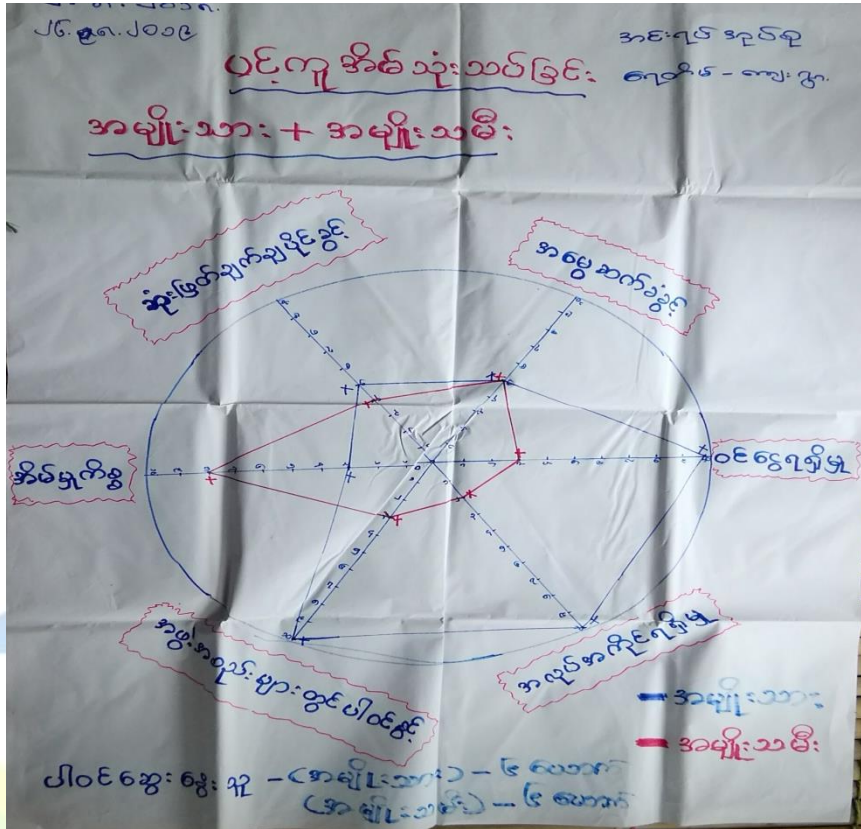 ၂၆.၃၈.၂၀၁၉
ပင့်ကူအိမ်သုံးသပ်ခြင်း
အမျိုးသား + အမျိုးသမီး
ဆုံးဖြတ်ချက်ချပိုင်ခွင့်
အမွေဆက်ခံခွင့်
အိမ်မှုကိစ္စ
ဝင်ငွေရရှိမှု
အဖွဲ့အစည်းများတွင်ပါဝင်ခွင့်
အလုပ်အကိုင်ရရှိမှု
အမျိုးသား
အမျိုးသမီး
ပါဝင်ဆွေးနွေးသူ - (အမျိုးသား) - ၆ ယောက်
(အမျိုးသမီး) - ၆ ယောက်